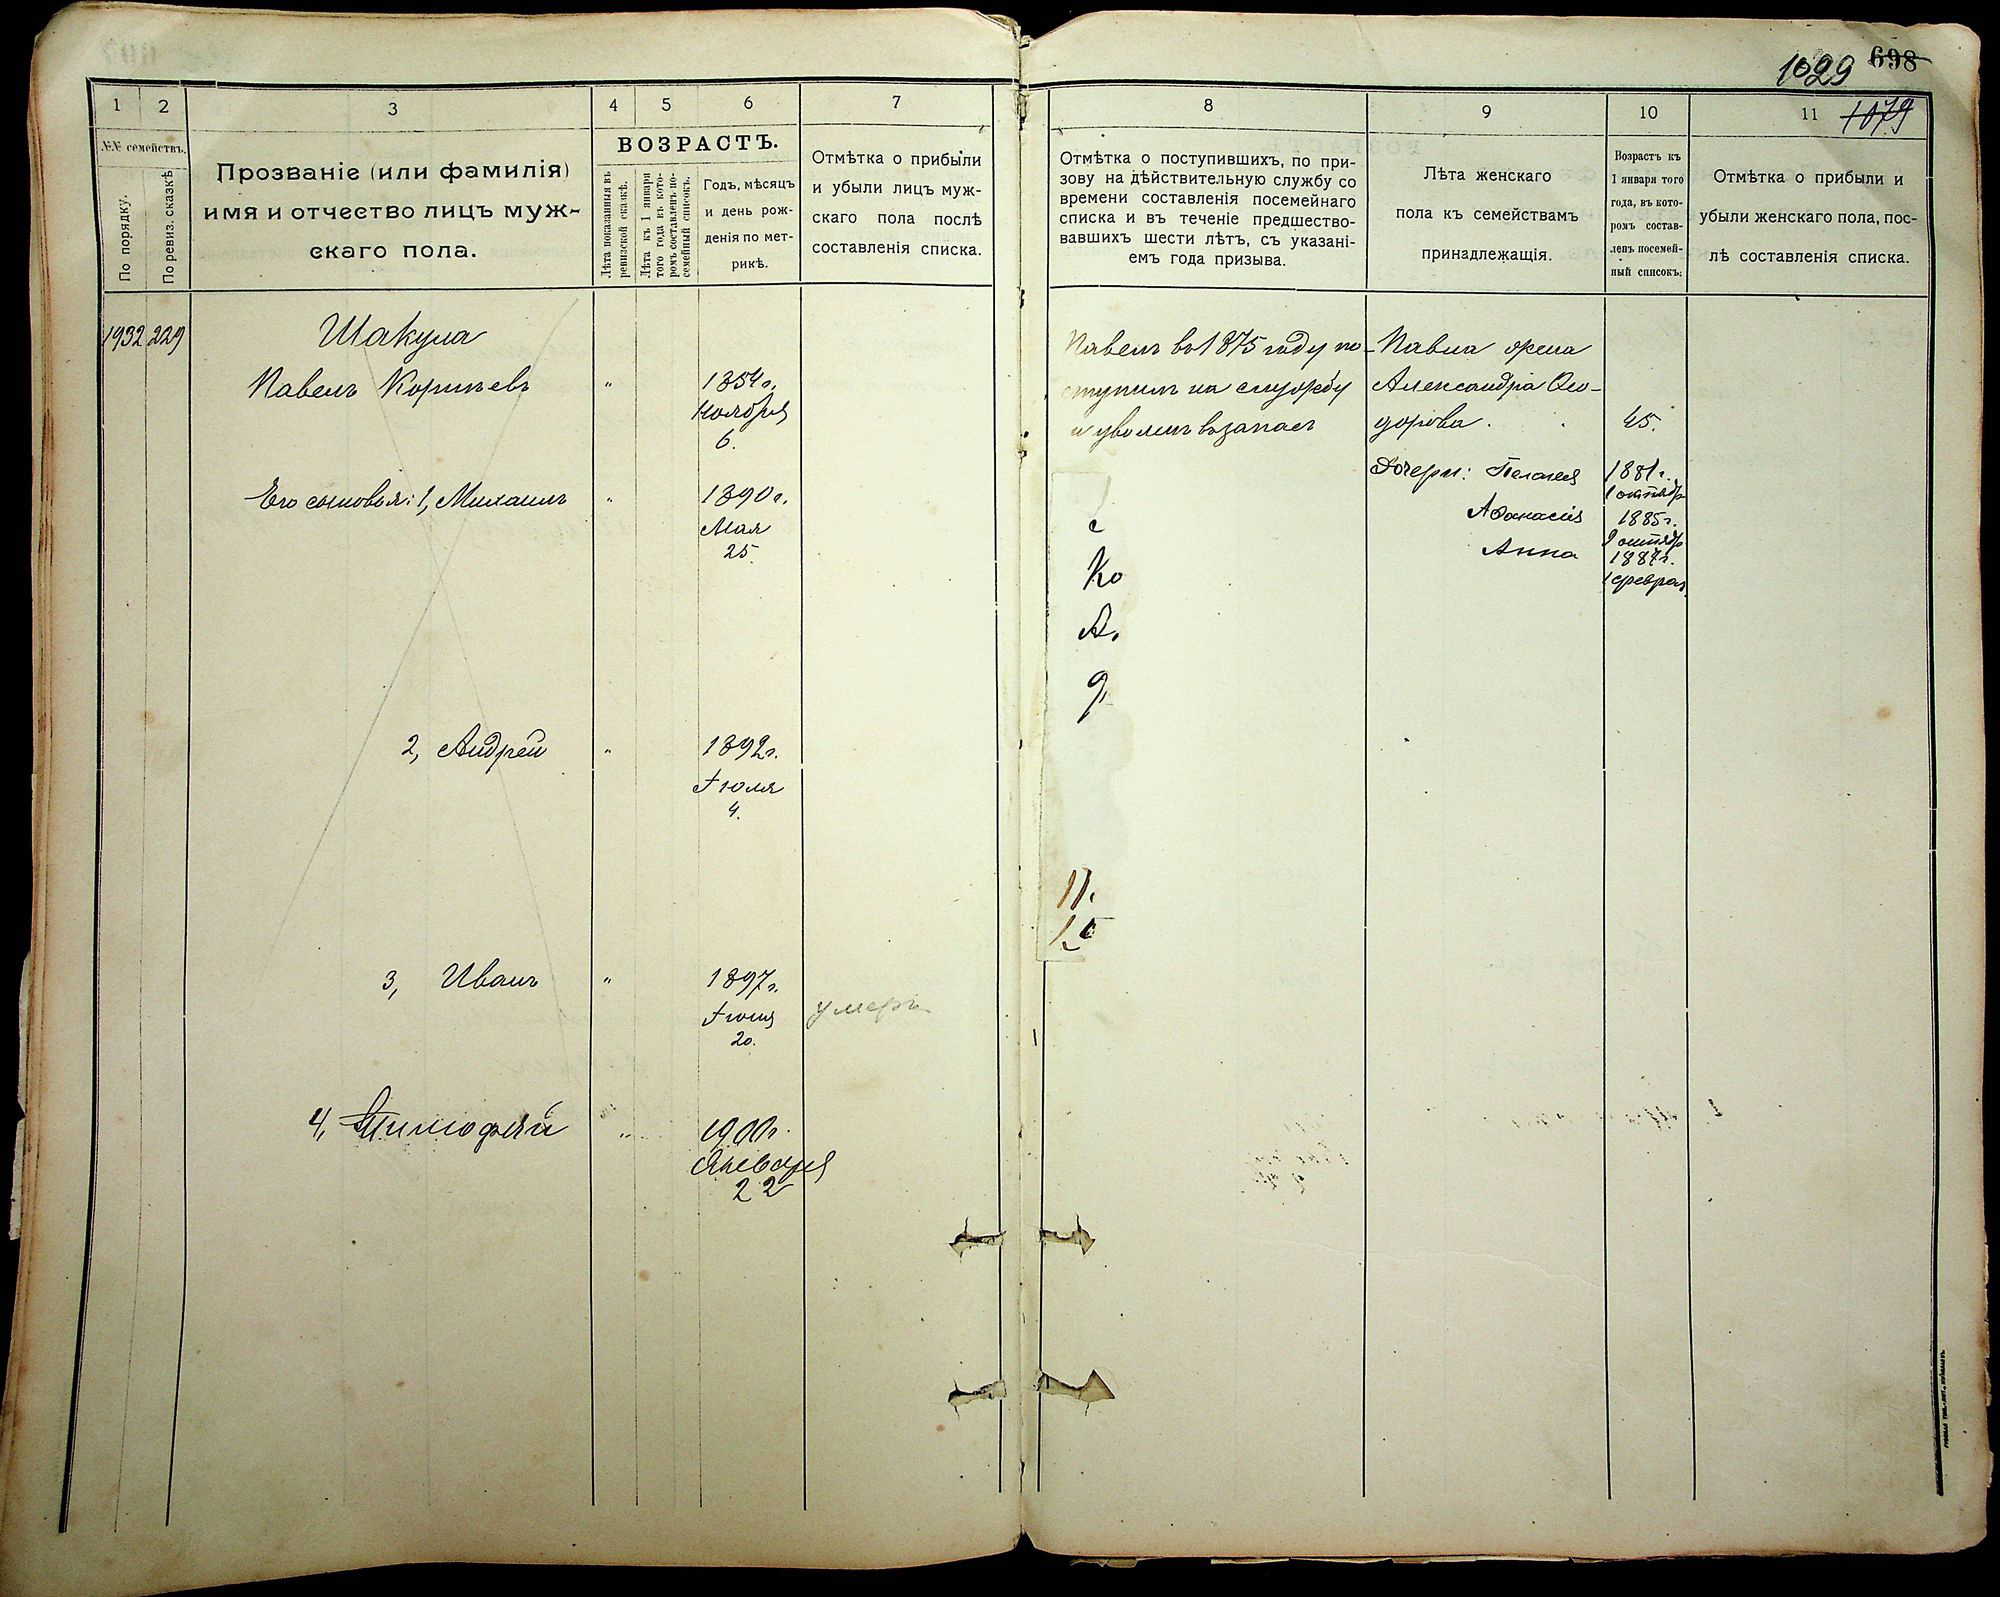 698
1029
1079
1
2
3
4
5
6
7
№№ семействъ.
По порядку.
По ревиз. сказкѣ
Прозваніе (или фамилія)
имя и отчество лицъ муж-
скаго пола.
ВОЗРАСТЪ.
Лѣта показанныя въ
ревизской сказкѣ.
Лѣта къ 1 января
того года къ кото-
ромъ составленъ по-
семейный списокъ.
Годъ, мѣсяцъ
и день рож-
денія по мет-
рикѣ.
Отмѣтка о прибыли
и убыли лицъ муж-
скаго пола послѣ
составленія списка.
8
9
10
11
Отмѣтка о поступившихъ, по при-
зову на дѣйствительную службу со
времени составленія посемейнаго
списка и въ теченіе предшество-
вавшихъ шести лѣтъ, съ указані-
емъ года призыва.
Лѣта женскаго
пола къ семействамъ
принадлежащія.
Возрастъ къ
1 января того
года, въ кото-
ромъ состав-
ленъ посемей-
ный списокъ.
Отмѣтка о прибыли и
убыли женскаго пола, пос-
лѣ составленія списка.
1932 229
Шакула
Павелъ Корнѣевъ " 1854 г.
Ноября
6.
Его сыновья: 1, Михаилъ " 1890 г.
Мая
25
2, Андрей " 1892 г.
Іюля
4.
3, Иванъ " 1897 г.
Іюня
20.
умеръ
4, Тимофей " 1900 г.
Января
22
Павелъ въ 1875 году по-
ступилъ на службу
и уволенъ въ запасъ
с
Ко
А.
д
Павла жена
Александра Ѳео-
дорова. 45.
Дочери: Пелагея 1881 г.
1 октяб
Афанасія 1885 г.
9 октяб
Анна 1887 г.
1 феврал